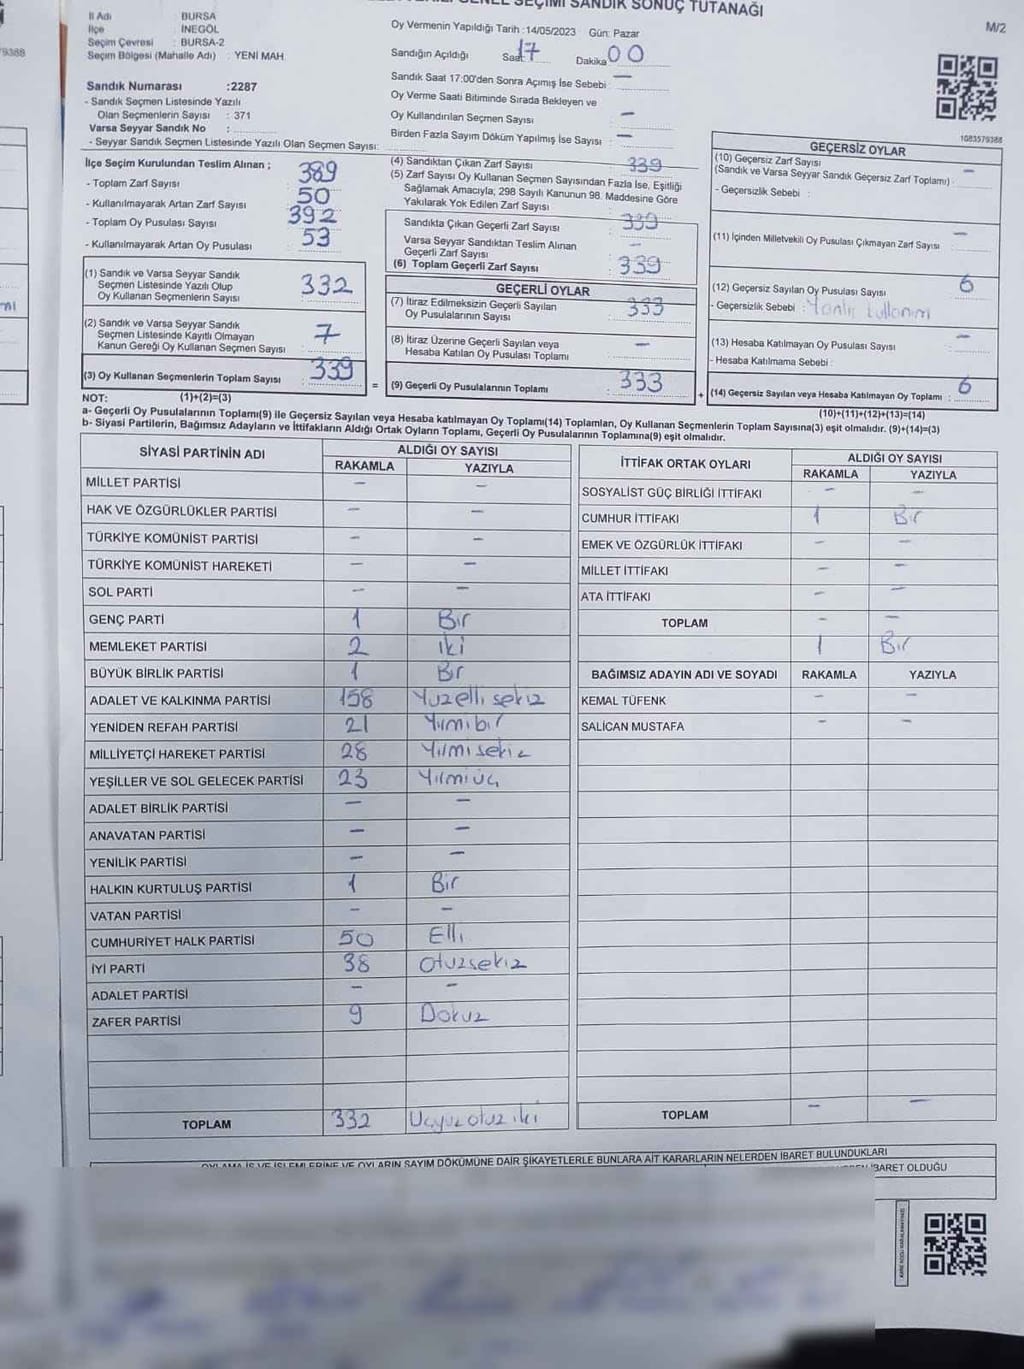 GENEL SEÇİMİ SANDIK SONUÇ TUTANAĞI
M/2
9388
İl Adı BURSA
İlçe İNEGÖL
Seçim Çevresi : BURSA-2
Seçim Bölgesi (Mahalle Adı) : YENİ MAH
Sandık Numarası :2287
- Sandık Seçmen Listesinde Yazılı
Olan Seçmenlerin Sayısı : 371
Varsa Seyyar Sandık No :
- Seyyar Sandık Seçmen Listesinde Yazılı Olan Seçmen Sayısı:
Oy Vermenin Yapıldığı Tarih :14/05/2023 Gün: Pazar
Sandığın Açıldığı Saat 17 Dakika 00
Sandık Saat 17:00'den Sonra Açımış İse Sebebi : —
Oy Verme Saati Bitiminde Sırada Bekleyen ve
Oy Kullandırılan Seçmen Sayısı : —
Birden Fazla Sayım Döküm Yapılmış İse Sayısı : —
1083579388
İlçe Seçim Kurulundan Teslim Alınan ;
- Toplam Zarf Sayısı : 389
- Kullanılmayarak Artan Zarf Sayısı : 50
- Toplam Oy Pusulası Sayısı : 392
- Kullanılmayarak Artan Oy Pusulası : 53
(1) Sandık ve Varsa Seyyar Sandık
Seçmen Listesinde Yazılı Olup
Oy Kullanan Seçmenlerin Sayısı : 332
(2) Sandık ve Varsa Seyyar Sandık
Seçmen Listesinde Kayıtlı Olmayan
Kanun Gereği Oy Kullanan Seçmen Sayısı : 7
(3) Oy Kullanan Seçmenlerin Toplam Sayısı : 339
(4) Sandıktan Çıkan Zarf Sayısı : 339
(5) Zarf Sayısı Oy Kullanan Seçmen Sayısından Fazla İse, Eşitliği
Sağlamak Amacıyla; 298 Sayılı Kanunun 98. Maddesine Göre
Yakılarak Yok Edilen Zarf Sayısı :
Sandıkta Çıkan Geçerli Zarf Sayısı : 339
Varsa Seyyar Sandıktan Teslim Alınan
Geçerli Zarf Sayısı : —
(6) Toplam Geçerli Zarf Sayısı : 339
GEÇERLİ OYLAR
(7) İtiraz Edilmeksizin Geçerli Sayılan
Oy Pusulalarının Sayısı : 333
(8) İtiraz Üzerine Geçerli Sayılan veya
Hesaba Katılan Oy Pusulası Toplamı : —
= (9) Geçerli Oy Pusulalarının Toplamı : 333
GEÇERSİZ OYLAR
(10) Geçersiz Zarf Sayısı
(Sandık ve Varsa Seyyar Sandık Geçersiz Zarf Toplamı) : —
- Geçersizlik Sebebi :
(11) İçinden Milletvekili Oy Pusulası Çıkmayan Zarf Sayısı : —
(12) Geçersiz Sayılan Oy Pusulası Sayısı : 6
- Geçersizlik Sebebi : Yanlış kullanım
(13) Hesaba Katılmayan Oy Pusulası Sayısı : —
- Hesaba Katılmama Sebebi :
+ (14) Geçersiz Sayılan veya Hesaba Katılmayan Oy Toplamı : 6
NOT: (1)+(2)=(3)
(10)+(11)+(12)+(13)=(14)
a- Geçerli Oy Pusulalarının Toplamı(9) ile Geçersiz Sayılan veya Hesaba katılmayan Oy Toplamı(14) Toplamları, Oy Kullanan Seçmenlerin Toplam Sayısına(3) eşit olmalıdır. (9)+(14)=(3)
b- Siyasi Partilerin, Bağımsız Adayların ve İttifakların Aldığı Ortak Oyların Toplamı, Geçerli Oy Pusulalarının Toplamına(9) eşit olmalıdır.
SİYASİ PARTİNİN ADI ALDIĞI OY SAYISI
RAKAMLA YAZIYLA
MİLLET PARTİSİ — —
HAK VE ÖZGÜRLÜKLER PARTİSİ — —
TÜRKİYE KOMÜNİST PARTİSİ — —
TÜRKİYE KOMÜNİST HAREKETİ — —
SOL PARTİ — —
GENÇ PARTİ 1 Bir
MEMLEKET PARTİSİ 2 iki
BÜYÜK BİRLİK PARTİSİ 1 Bir
ADALET VE KALKINMA PARTİSİ 158 Yüzelli sekiz
YENİDEN REFAH PARTİSİ 21 Yirmibir
MİLLİYETÇİ HAREKET PARTİSİ 28 Yirmisekiz
YEŞİLLER VE SOL GELECEK PARTİSİ 23 Yirmiüç
ADALET BİRLİK PARTİSİ — —
ANAVATAN PARTİSİ — —
YENİLİK PARTİSİ — —
HALKIN KURTULUŞ PARTİSİ 1 Bir
VATAN PARTİSİ — —
CUMHURİYET HALK PARTİSİ 50 Elli
İYİ PARTİ 38 Otuzsekiz
ADALET PARTİSİ — —
ZAFER PARTİSİ 9 Dokuz
TOPLAM 332 Üçyüz otuz iki
İTTİFAK ORTAK OYLARI ALDIĞI OY SAYISI
RAKAMLA YAZIYLA
SOSYALİST GÜÇ BİRLİĞİ İTTİFAKI — —
CUMHUR İTTİFAKI 1 Bir
EMEK VE ÖZGÜRLÜK İTTİFAKI — —
MİLLET İTTİFAKI — —
ATA İTTİFAKI — —
TOPLAM — —
1 Bir
BAĞIMSIZ ADAYIN ADI VE SOYADI RAKAMLA YAZIYLA
KEMAL TÜFENK — —
SALİCAN MUSTAFA — —
TOPLAM — —
OYLAMA İŞ VE İŞLEMLERİNE VE OYLARIN SAYIM DÖKÜMÜNE DAİR ŞİKAYETLERLE BUNLARA AİT KARARLARIN NELERDEN İBARET BULUNDUKLARI
İBARET OLDUĞU